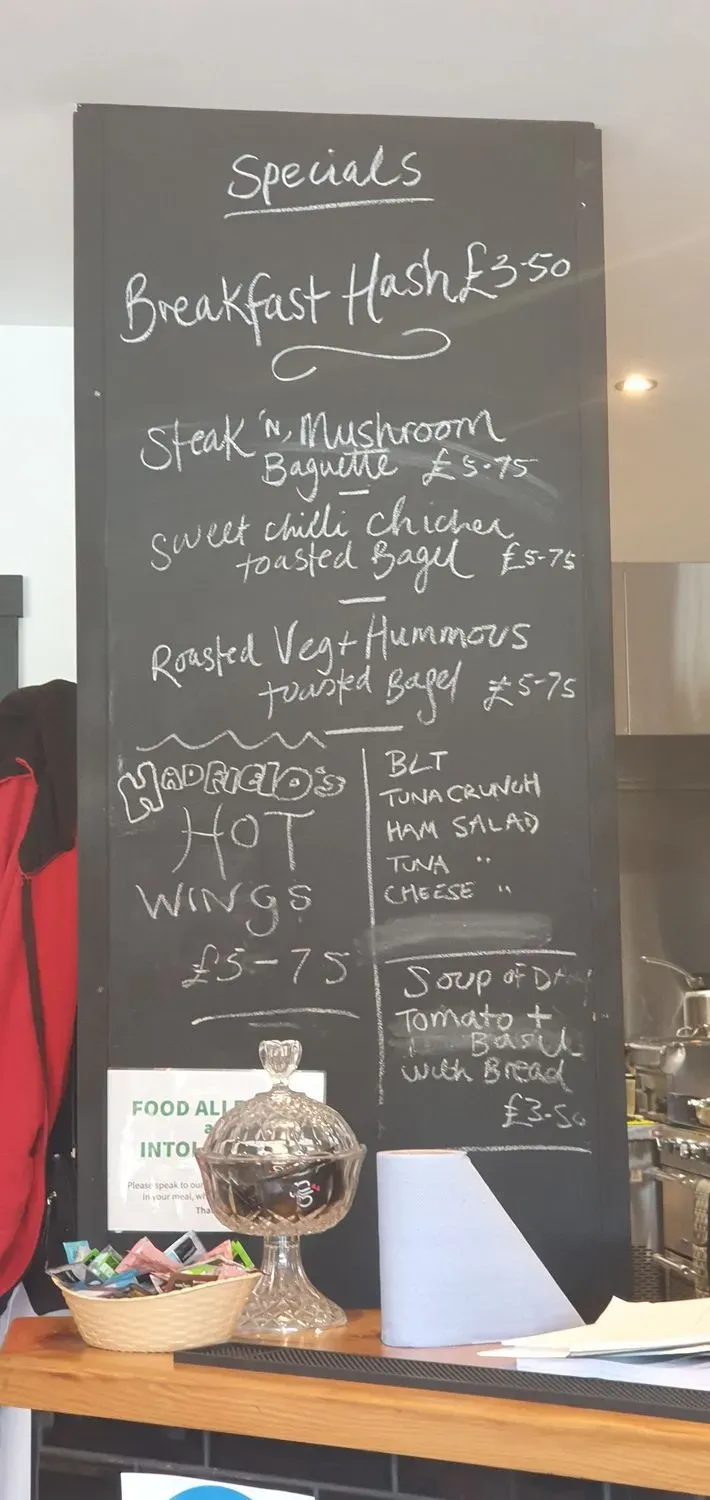 Specials
Breakfast Hash £3-50
Steak 'N' Mushroom
Baguette £5-75
Sweet chilli chicken
toasted Bagel £5-75
Roasted Veg + Hummous
toasted Bagel £5-75
HADFIELD'S
HOT
WINGS
£5-75
BLT
TUNA CRUNCH
HAM SALAD
TUNA "
CHEESE "
Soup of Day
Tomato +
Basil
with Bread
£3-50
FOOD
INTOL
Please speak to our
in your meal,